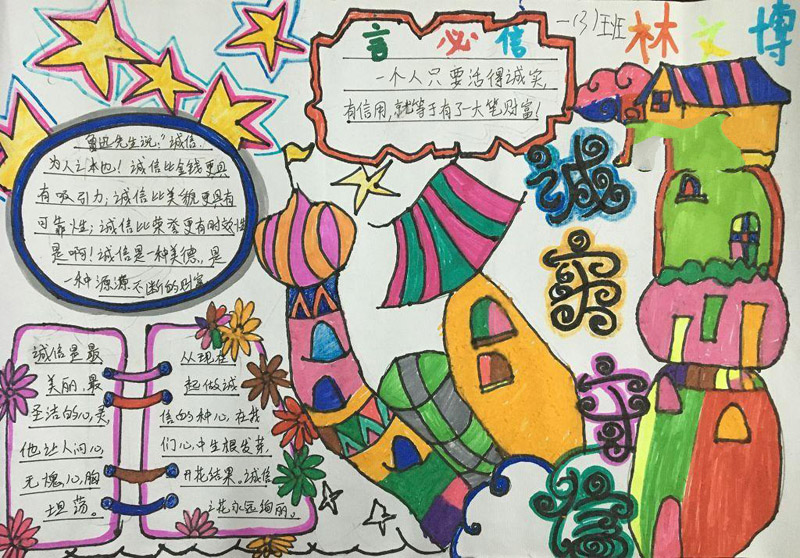 言必信
一(3)班
林文博
一个人只要活得诚实,
有信用,就等于有了一大笔财富!
鲁迅先生说:"诚信
为人之本也!诚信比金钱更具
有吸引力;诚信比美貌更具有
可靠性;诚信比荣誉更有时效性
是啊!诚信是一种美德,是
一种源源不断的财富
诚实守信
诚信是最
美丽、最
圣洁的心灵,
他让人问心
无愧,心胸
坦荡。
从现在
起做诚
信的种心,在我
们心中生根发芽,
开花结果。诚信
之花永远绚丽。